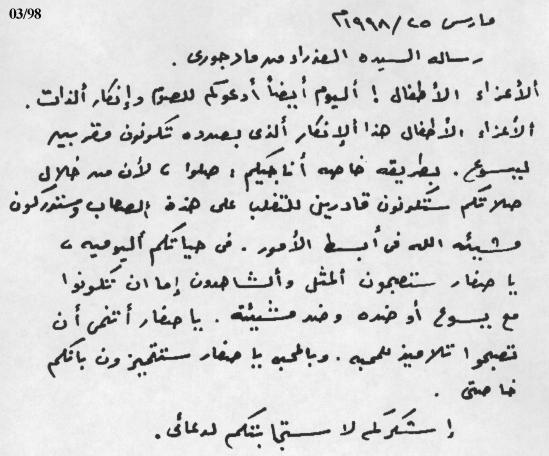 03/98
مارس ٢٥/١٩٩٨م
رساله السيده العذراء من مادجورى.
الأعزاء الأطفال ! أليوم أيضاً أدعوكم للصوم وإنكار ألذات.
الأعزاء الأطفال هذا ألإنكار ألذى بصدده تكونون مقربيه
ليسوع. بطريقه خاصه أناجيكم: صلوا، لأن من خلال
صلاتكم ستكونون قادرين للتغلب على هذة الصعاب وستدركون
مشيئه الله فى أبسط الأمور. فى حياتكم أليوميه،
يا صغار ستصبحون ألمثل وألشاهدون إما ان تكونوا
مع يسوع أو ضده وضد مشيئته. يا صغار أتمنى أن
تصبحوا تلاميذ للمحبه. وبالمحبه يا صغار ستتميزون بأنكم
خاصتى.
إ ستكركم لا ستجابتكم لدعائى.